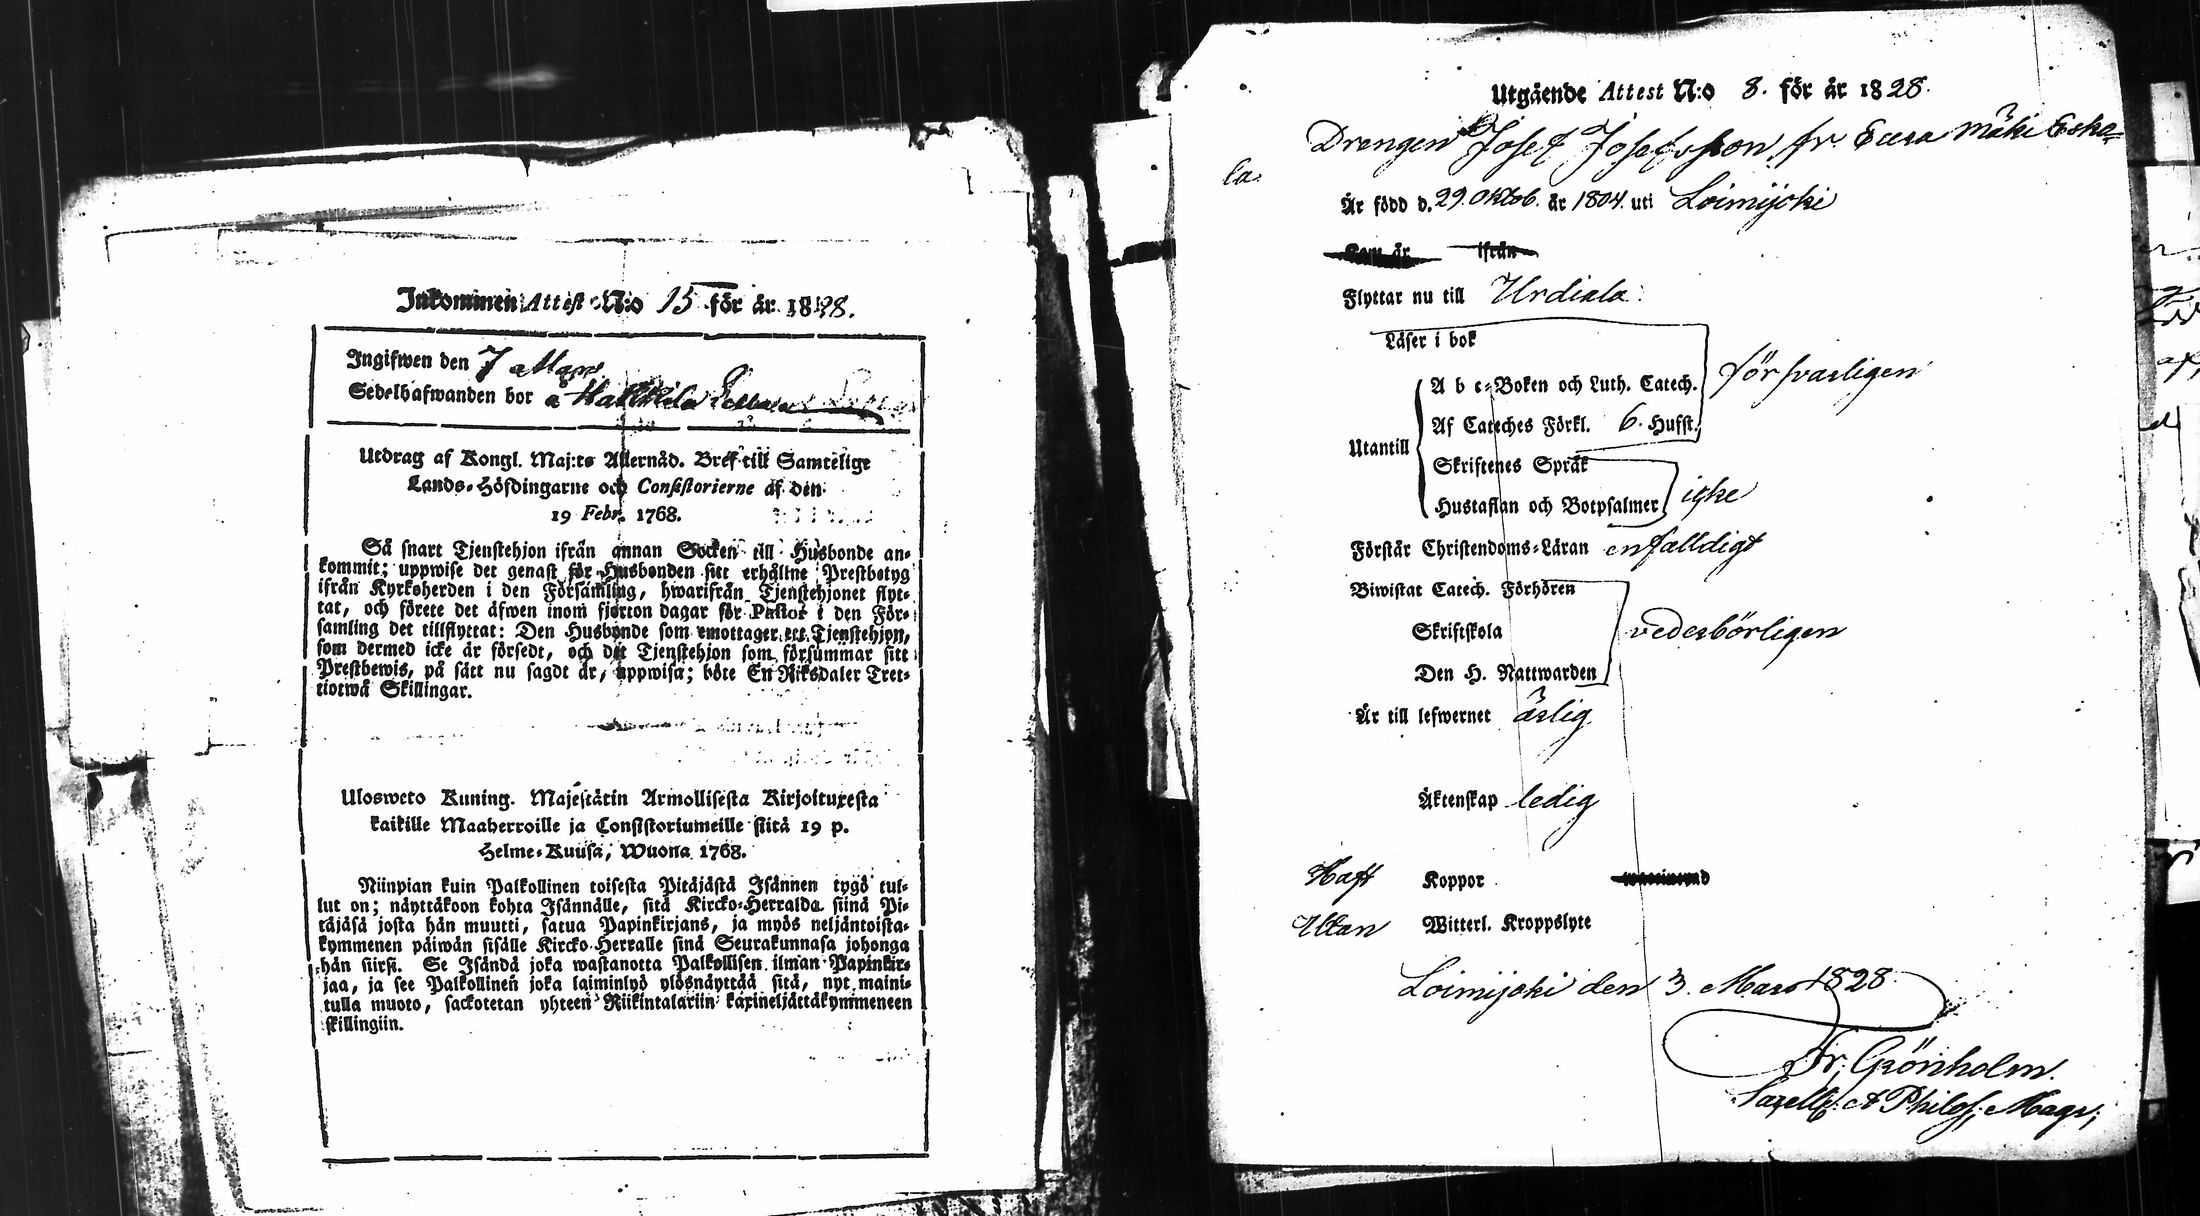 Inkommen Attest N:o 15 för år 1828.
Ingifwen den 7 Mars
Sedelhafwanden bor å
Utdrag af Kongl. Maj:ts Allernåd. Bref till Samtelige
Lands-Höfdingarne och Consistorierne af den
19 Febr. 1768.
Så snart Tjenstehjon ifrån annan Socken till Husbonde an-
kommit; uppwise det genast för Husbonden sitt erhållne Prestbetyg
ifrån Kyrkoherden i den Församling, hwarifrån Tjenstehjonet flyt-
tat, och förete det äfwen inom fjorton dagar för Pastor i den För-
samling det tillflyttat: Den Husbonde som emottager ett Tjenstehjon,
som dermed icke är försedt, och det Tjenstehjon som försummar sitt
Prestbewis, på sätt nu sagdt är, uppwisa; böte En Riksdaler Tret-
tiotwå Skillingar.
Ulosweto Kuning. Majestätin Armollisesta Kirjoituxesta
kaikille Maaherroille ja Consistoriumeille siitä 19 p.
Helme-Kuusa, Wuona 1768.
Niinpian kuin Palkollinen toisesta Pitäjästä Isännen tygö tul-
lut on; näyttäkoon kohta Isännälle, sitä Kircko-Herralda siinä Pi-
täjäsä josta hän muutti, satua Papinkirjans, ja myös neljäntoista-
kymmenen päiwän sisälle Kircko-Herralle sinä Seurakunnasa johonga
hän siirsi. Se Isändä joka wastanotta Palkollisen ilman Papinkir-
jaa, ja see Palkollinen joka laiminlyö ylösnäyttää sitä, nyt maini-
tulla muoto, sackotetan yhteen Riikintalariin kaxineljättäkymmeneen
skillingiin.
Utgående Attest N:o 8. för år 1828.
Drengen Josef Josefsson fr. Eura Mäki Esko-
la.
Är född d. 29. Oktob. år 1804. uti Loimijoki
Kom år ifrån
Flyttar nu till Urdiala.
Läser i bok
A b c-Boken och Luth. Catech. försvarligen
Af Cateches Förkl. 6. Hufst.
Utantill
Skriftenes Språk
Hustaflan och Botpsalmer icke
Förstår Christendoms-Läran enfalldigt
Biwistat Catech. Förhören
Skriftskola vederbörligen
Den H. Nattwarden
Är till lefwernet ärlig
Äktenskap ledig
Haft Koppor
Utan Witterl. Kroppslyte
Loimijoki den 3. Mars 1828.
Fr. Grönholm.
Sacell. & Philos. Mag;